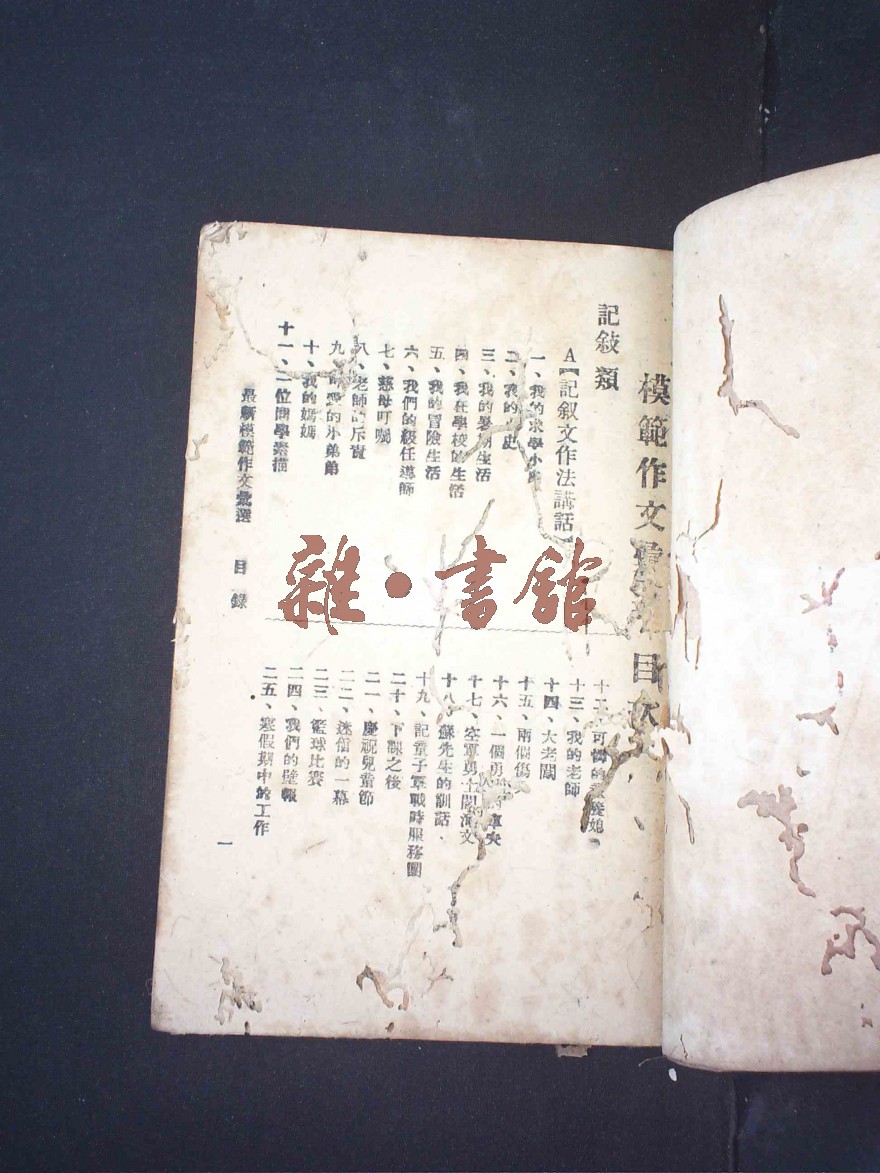 模範作文 目次
記敍類
A【記叙文作法講話】
一、我的求學小
二、我的 史
三、我的暑期生活
四、我在學校的生活
五、我的冒險生活
六、我們的級任導師
七、慈母叮嚀
八、老師的斥責
九、可愛的小弟弟
十、我的媽媽
十一、一位同學素描
可憐的
十三、我的老師
十四、大老闆
十五、兩個傷
十六、一個勇
十七、空軍勇士閻海文
十八、蘇先生的訓話
十九、記童子軍戰時服務團
二十、下課之後
二一、慶祝兒童節
二二、迷信的一幕
二三、籃球比賽
二四、我們的壁報
二五、寒假期中的工作
最新模範作文彙選 目錄
一
雜·書館